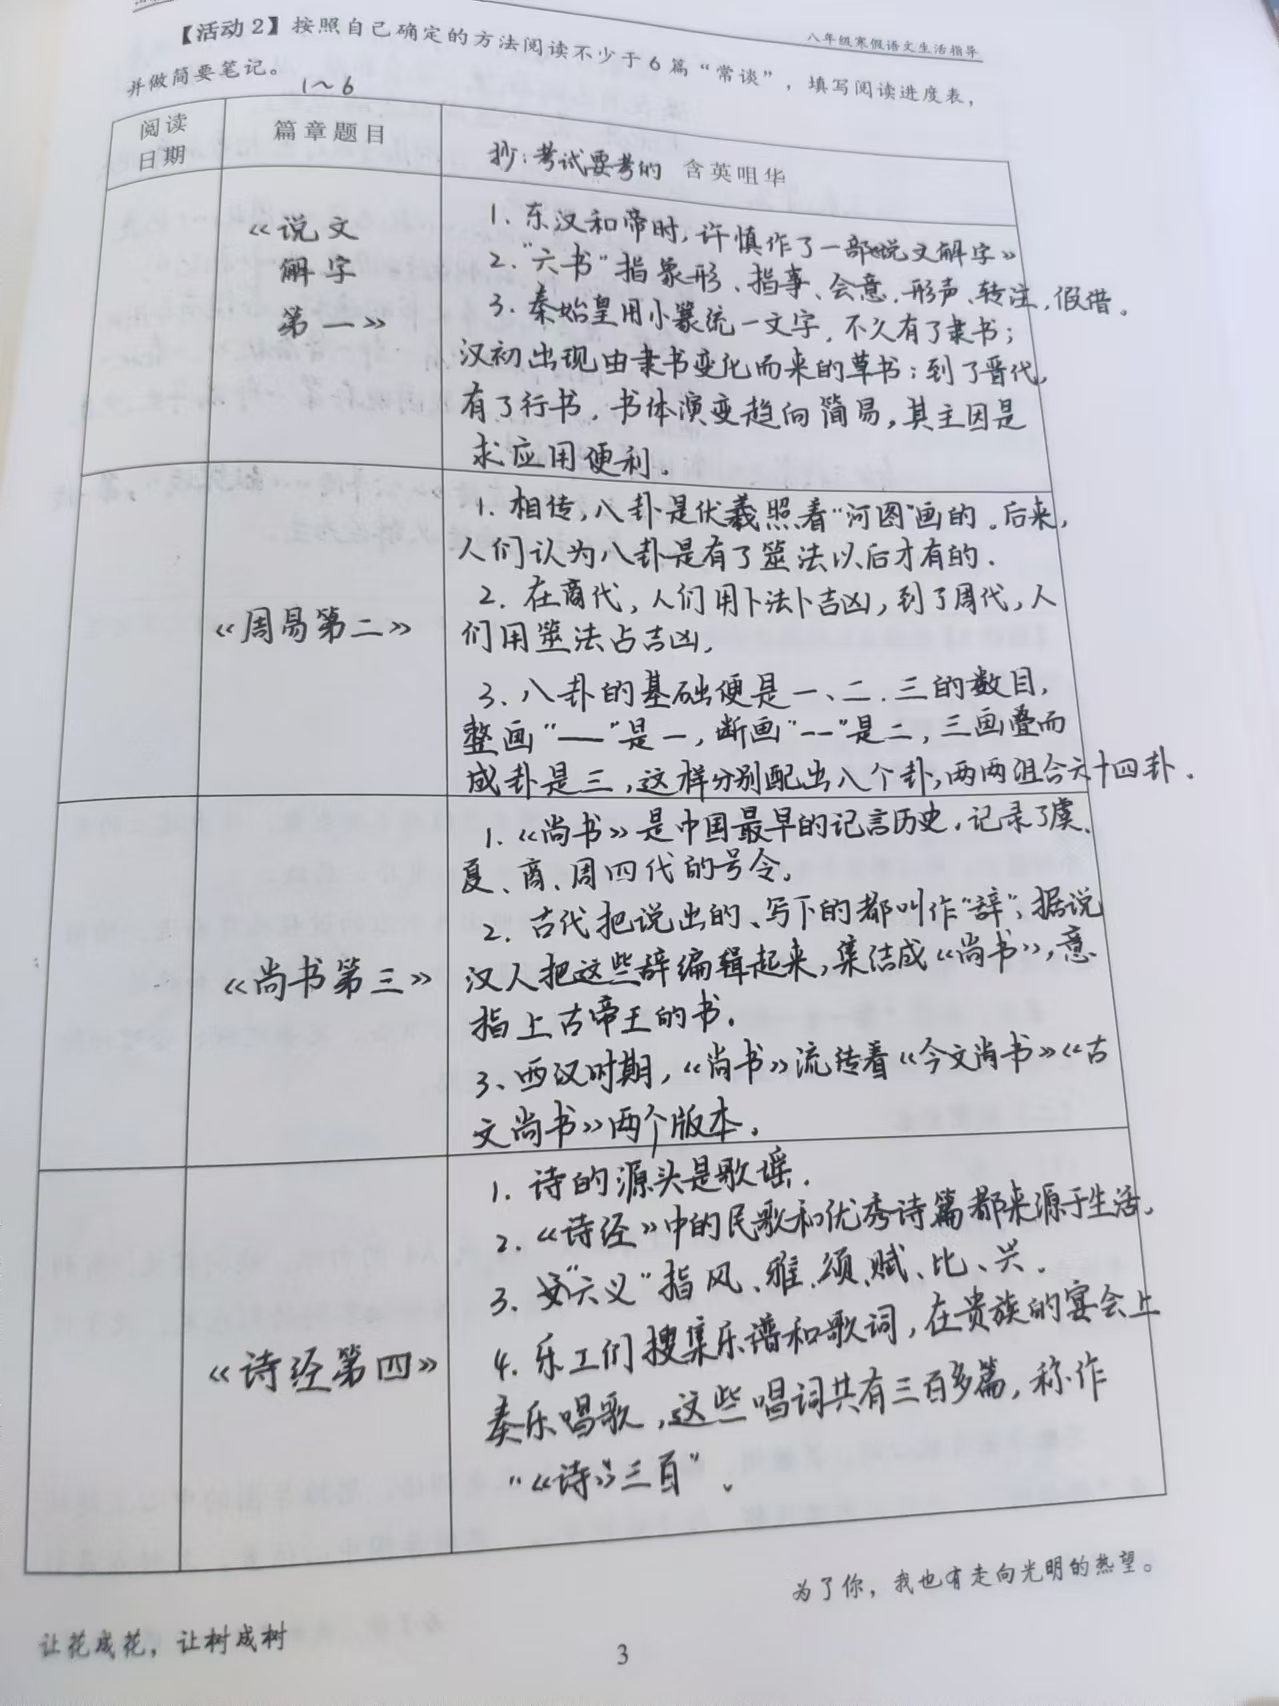 八年级寒假语文生活指导
【活动2】按照自己确定的方法阅读不少于6篇“常谈”，填写阅读进度表，
并做简要笔记。
1～6
阅读
日期
篇章题目
抄：考试要考的 含英咀华
《说文
解字
第一》
1. 东汉和帝时，许慎作了一部《说文解字》
2. “六书”指象形、指事、会意、形声、转注、假借。
3. 秦始皇用小篆统一文字，不久有了隶书；
汉初出现由隶书变化而来的草书；到了晋代，
有了行书．书体演变趋向简易，其主因是
求应用便利．
《周易第二》
1. 相传，八卦是伏羲照着“河图”画的．后来，
人们认为八卦是有了筮法以后才有的．
2. 在商代，人们用卜法卜吉凶，到了周代，人
们用筮法占吉凶，
3. 八卦的基础便是一、二．三的数目，
整画“—”是一，断画“--”是二，三画叠而
成卦是三，这样分别配出八个卦，两两组合六十四卦．
《尚书第三》
1.《尚书》是中国最早的记言历史，记录了虞、
夏、商、周四代的号令。
2. 古代把说出的、写下的都叫作“辞”；据说
汉人把这些辞编辑起来，集结成《尚书》，意
指上古帝王的书．
3、西汉时期，《尚书》流传着《今文尚书》《古
文尚书》两个版本．
《诗经第四》
1. 诗的源头是歌谣．
2.《诗经》中的民歌和优秀诗篇都来源于生活。
3. “六义”指风、雅、颂、赋、比、兴．
4. 乐工们搜集乐谱和歌词，在贵族的宴会上
奏乐唱歌，这些唱词共有三百多篇，称作
“《诗》三百”．
为了你，我也有走向光明的热望。
让花成花，让树成树
3